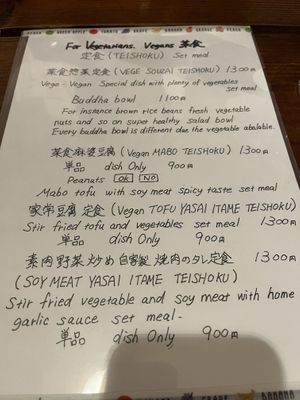 GREEN APPLE TOMATO GRAPE BANANA ORANGE PEACH
For Vegetarians. Vegans 菜食
定食 (TEISHOKU) Set meal
菜食惣菜定食 (VEGE SOUZAI TEISHOKU) 1300円
Vege-Vegan Special dish with plenty of vegetables
set meal
Buddha bowl 1100円
For instence brown rice beans fresh vegetable
nuts and so on super healty salad bowl
Every buddha bowl is different due the vegetable abalable.
菜食麻婆豆腐 (Vegan MABO TEISHOKU) 1300円
単品 dish Only 900円
Peanuts OK NO
Mabo tofu with soy meat spicy taste set meal
家常豆腐 定食 (Vegan TOFU YASAI ITAME TEISHOKU)
Stir fried tofu and vegetables set meal 1300円
単品 dish Only 900円
素肉野菜炒め 自家製 焼肉のタレ定食 1300円
(SOY MEAT YASAI ITAME TEISHOKU)
Stir fried vegetable and soy meat with home
garlic sauce set meal-
単品 dish Only 900円